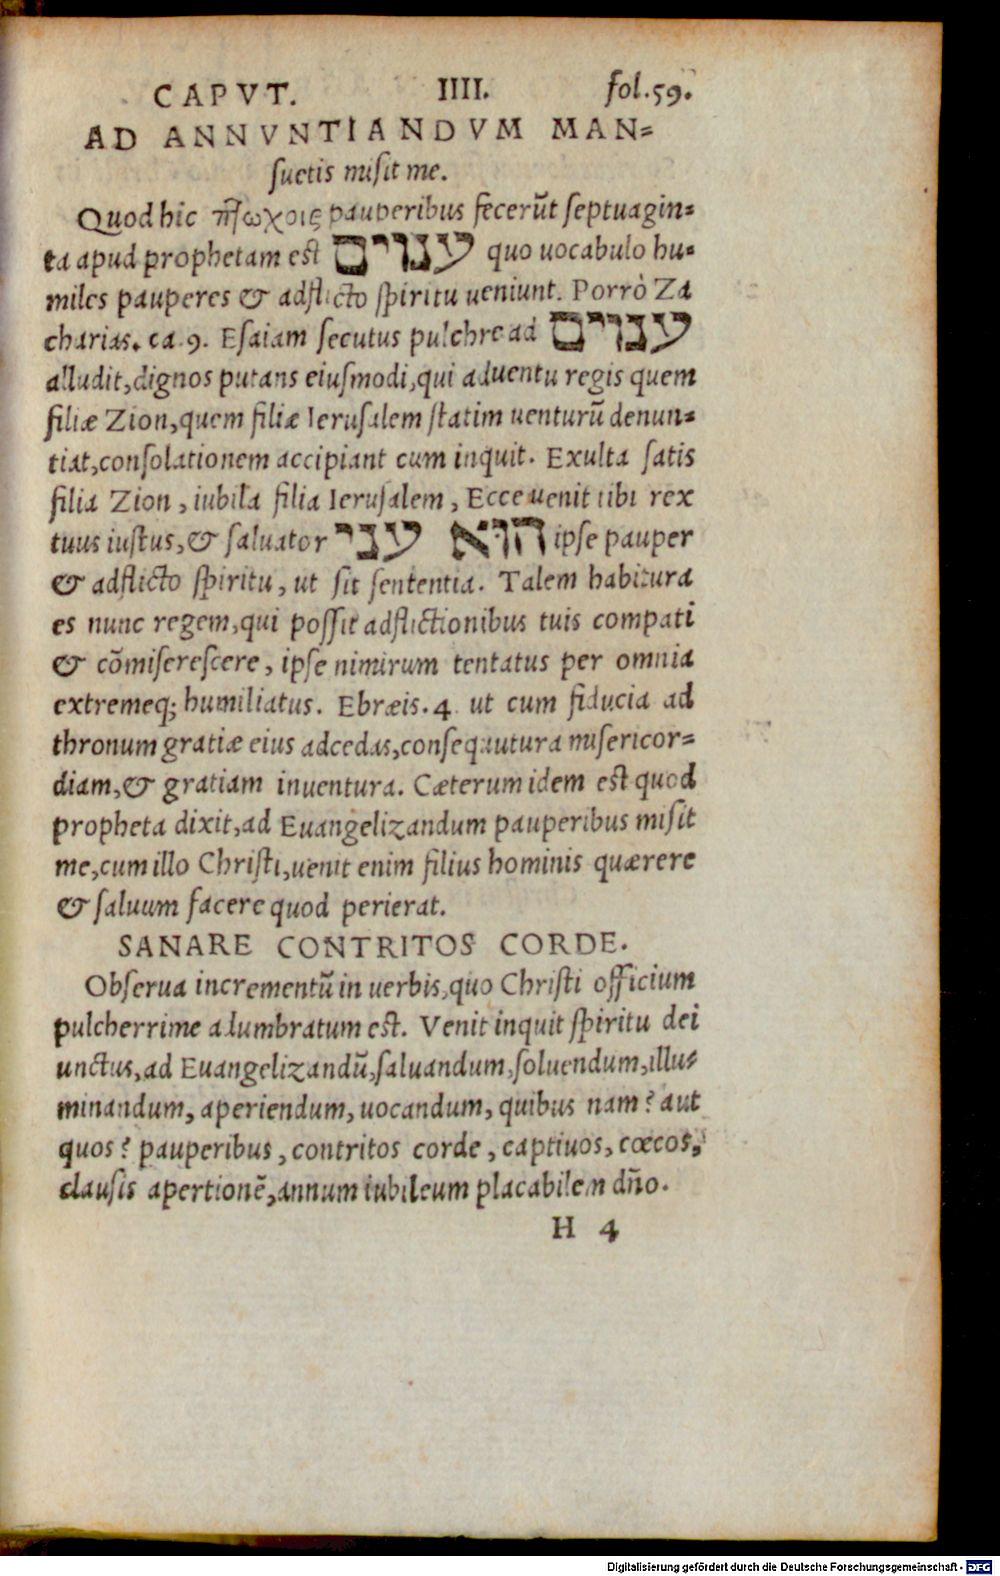 CAPVT. IIII. fol.59.
AD ANNVNTIANDVM MAN=
ſuetis miſit me.
Quod hic πτωχοις pauperibus fecerūt ſeptuagin=
ta apud prophetam est ענוים quo uocabulo hu=
miles pauperes & adflicto ſpiritu ueniunt. Porrò Za
charias. ca.9. Eſaiam ſecutus pulchre ad ענוים
alludit,dignos putans eiuſmodi,qui aduentu regis quem
filiæ Zion,quem filiæ Ieruſalem ſtatim uenturū denun=
tiat,conſolationem accipiant cum inquit. Exulta ſatis
filia Zion, iubila filia Ieruſalem, Ecce uenit tibi rex
tuus iuſtus,& ſaluator הוא עני ipſe pauper
& adflicto ſpiritu, ut ſit ſententia. Talem habitura
es nunc regem,qui poſſit adflictionibus tuis compati
& cōmiſereſcere, ipſe nimirum tentatus per omnia
extremeq; humiliatus. Ebræis.4 ut cum fiducia ad
thronum gratiæ eius adcedas,conſequutura miſericor=
diam,& gratiam inuentura. Cæterum idem eſt quod
propheta dixit,ad Euangelizandum pauperibus miſit
me,cum illo Chriſti,uenit enim filius hominis quærere
& ſaluum facere quod perierat.
SANARE CONTRITOS CORDE.
Obſerua incrementū in uerbis,quo Chriſti officium
pulcherrime adumbratum eſt. Venit inquit ſpiritu dei
unctus,ad Euangelizandū,ſaluandum,ſoluendum,illu=
minandum, aperiendum, uocandum, quibus nam? aut
quos? pauperibus, contritos corde, captiuos, cœcos,
clauſis apertionē,annum iubileum placabilem dño.
H 4
Digitalisierung gefördert durch die Deutsche Forschungsgemeinschaft - DFG